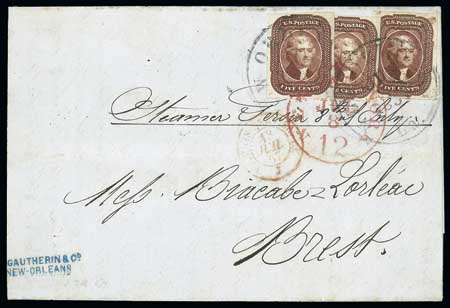 U.S. POSTAGE U.S. POSTAGE U.S. POSTAGE
FIVE CENTS CENTS FIVE CENTS
Steamer Persia 8th July
12
Mess. Biacabe & Lorléac
Brest.
GAUTHERIN & Co
NEW-ORLEANS